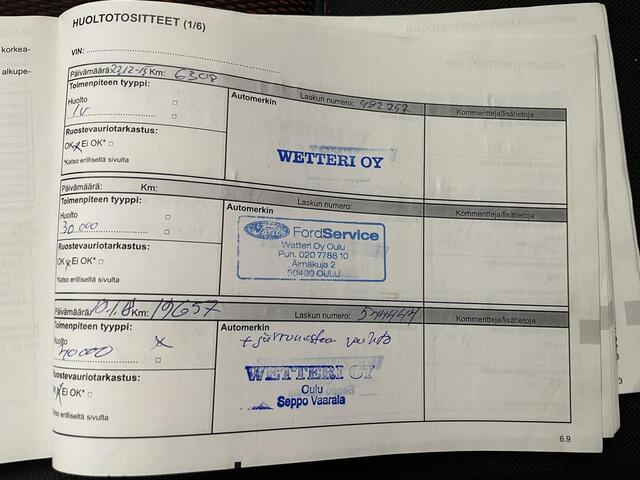 HUOLTOTOSITTEET (1/6)
korkea-
alkupe-
VIN:
Päivämäärä: 22.12-15 Km: 6308
Toimenpiteen tyyppi:
Huolto
1v
Ruostevauriotarkastus:
OK Ei OK*
*Katso erilliseltä sivulta
Automerkin
Laskun numero: 492757
WETTERI OY
Kommentteja/lisätietoja
Päivämäärä: Km:
Toimenpiteen tyyppi:
Huolto
30.000
Ruostevauriotarkastus:
OK Ei OK*
*Katso erilliseltä sivulta
Automerkin
Laskun numero:
Ford FordService
Wetteri Oy Oulu
Puh. 020 7788 10
Äimäkuja 2
90400 OULU
Kommentteja/lisätietoja
Päivämäärä: 10.1.8 Km: 19657
Toimenpiteen tyyppi:
Huolto
40000
Ruostevauriotarkastus:
Ei OK*
Katso erilliseltä sivulta
Automerkin
Laskun numero: 544444
+ jarrunesteen vaihto
WETTERI OY
Oulu
Seppo Vaarala
Kommentteja/lisätietoja
6.9